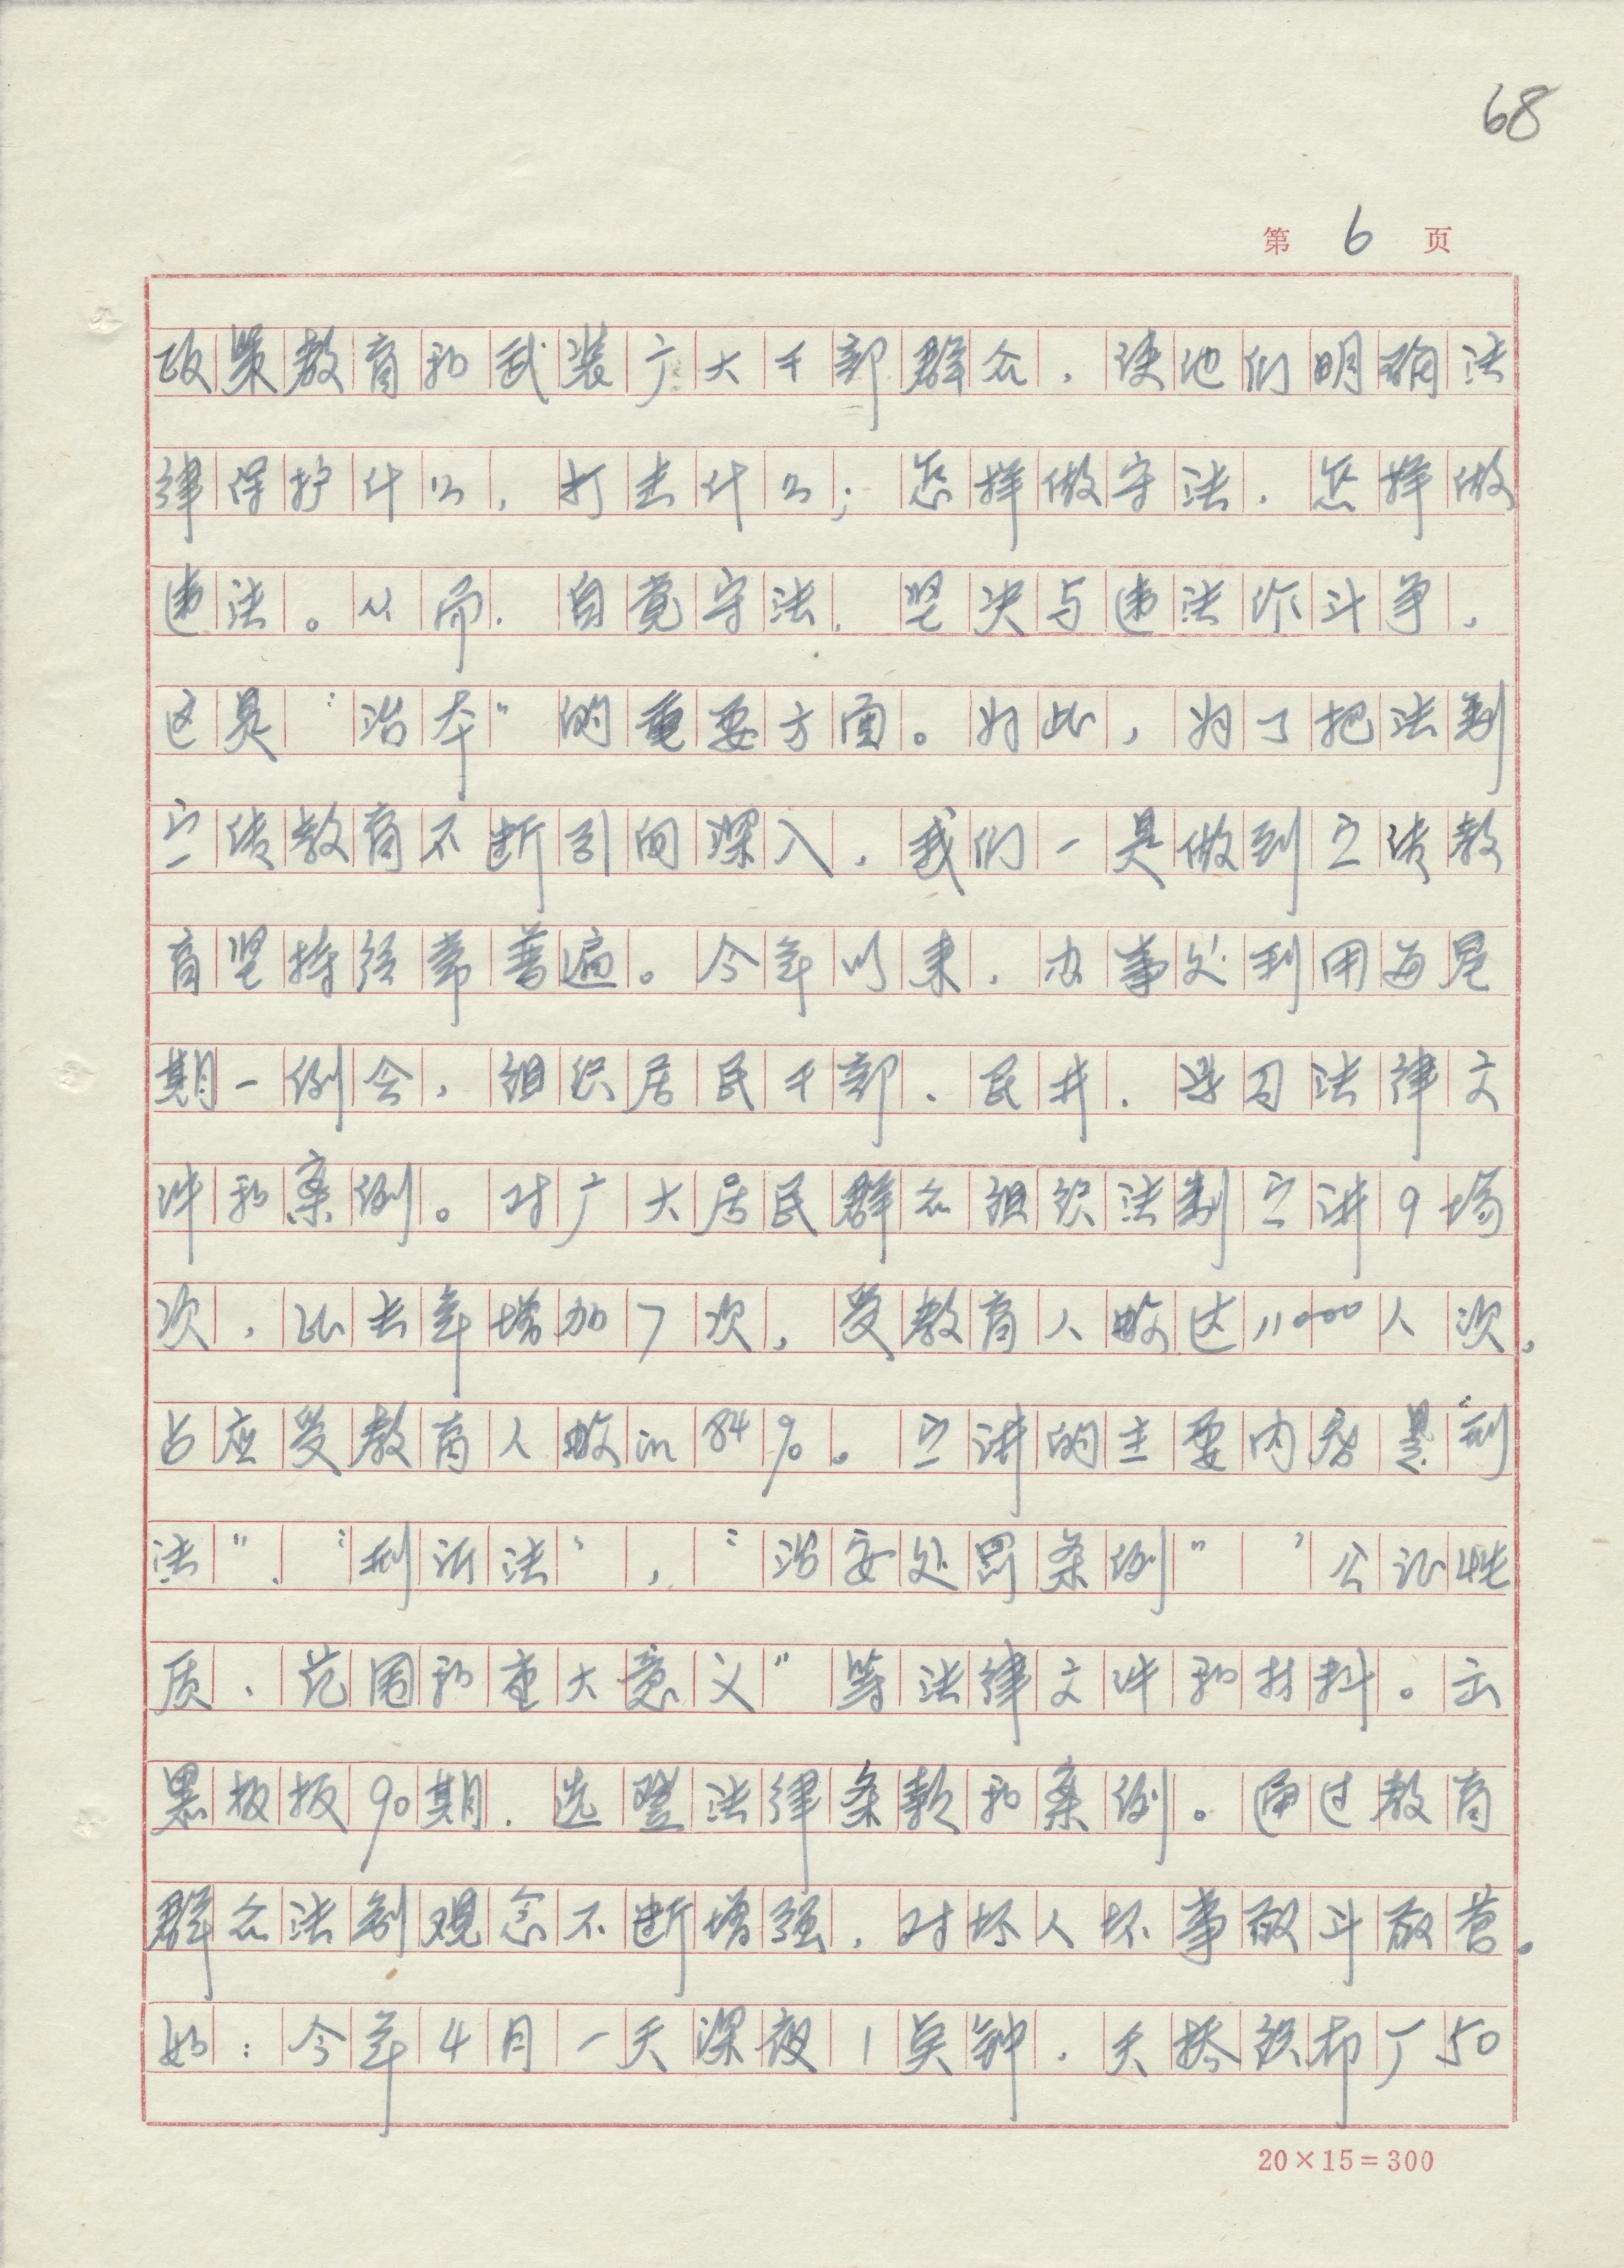 68
第 6 页
政策教育和武装广大干部群众，使他们明确法
律保护什么，打击什么；怎样做守法，怎样做
违法。从而，自觉守法，坚决与违法作斗争，
这是“治本”的重要方面。为此，为了把法制
宣传教育不断引向深入，我们一是做到宣传教
育坚持经常普遍。今年以来，办事处利用每星
期一例会，组织居民干部、民井，学习法律文
件和案例。对广大居民群众组织法制宣讲9场
次，比去年增加7次，受教育人数达11000人次，
占应受教育人数的84%。宣讲的主要内容是“刑
法”、“刑诉法”，“治安处罚条例”“公证性
质、范围和重大意义”等法律文件和材料。出
黑板报90期，选登法律条款和案例。通过教育
群众法制观念不断增强，对坏人坏事敢斗敢管。
如：今年4月一天深夜1点钟，天桥织布厂50
20×15=300